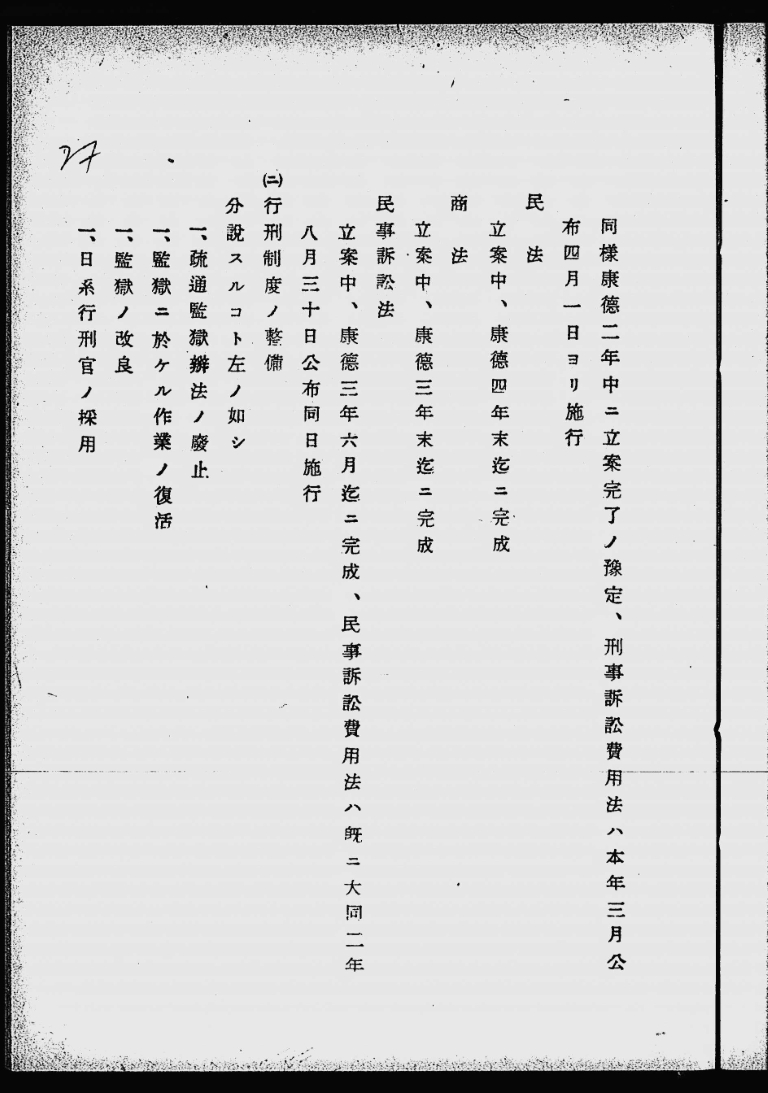 同樣康德二年中ニ立案完了ノ豫定、刑事訴訟費用法ハ本年三月公
布四月一日ヨリ施行
民法
立案中、康德四年末迄ニ完成
商法
立案中、康德三年末迄ニ完成
民事訴訟法
立案中、康德三年六月迄ニ完成、民事訴訟費用法ハ既ニ大同二年
八月三十日公布同日施行
㈡行刑制度ノ整備
分說スルコト左ノ如シ
一、疏通監獄辦法ノ廢止
一、監獄ニ於ケル作業ノ復活
一、監獄ノ改良
一、日系行刑官ノ採用
27